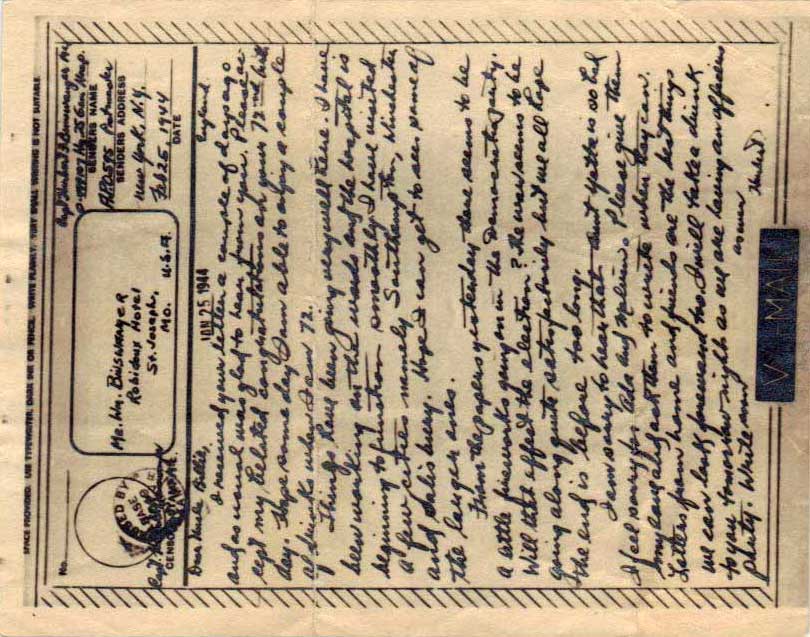 SPACE PROVIDED. USE TYPEWRITER, DARK INK OR PENCIL. WRITE PLAINLY. VERY SMALL WRITING IS NOT SUITABLE.
No.
CENSOR'S STAMP
Mr. Wm. Binswanger
Robidoux Hotel
St. Joseph,
Mo. U.S.A.
SENDERS NAME
APO 575 Postmaster
SENDERS ADDRESS
New York, N.Y.
Feb 25, 1944
DATE
JAN 25 1944
England
Dear Uncle Billie,
I received your letter a couple of days ago
and as usual was glad to hear from you. Please ac-
cept my belated congratulations on your 72nd birth
day. Hope some day I am able to enjoy a couple
of drinks when I am 72.
Things have been going very well here. I have
been working on the wards and the hospital is
beginning to function smoothly. I have visited
a few cities namely Southampton, Winchester
and Salisbury. Hope I can get to see some of
the larger ones.
From the papers yesterday there seems to be
a little fireworks going on in the Democratic party.
Will that effect the election? The war seems to be
going along quite satisfactorily but we all hope
the end is before too long.
I am sorry to hear that Aunt Yetta is so bad
I feel sorry for and Please give them
my love and ask them to write when they can.
Letters from home and friends are the best things
we can look forward to. I will take a drink
to you tomorrow night as we are having an officers
party. Write and
as ever
Herbert
V-MAIL